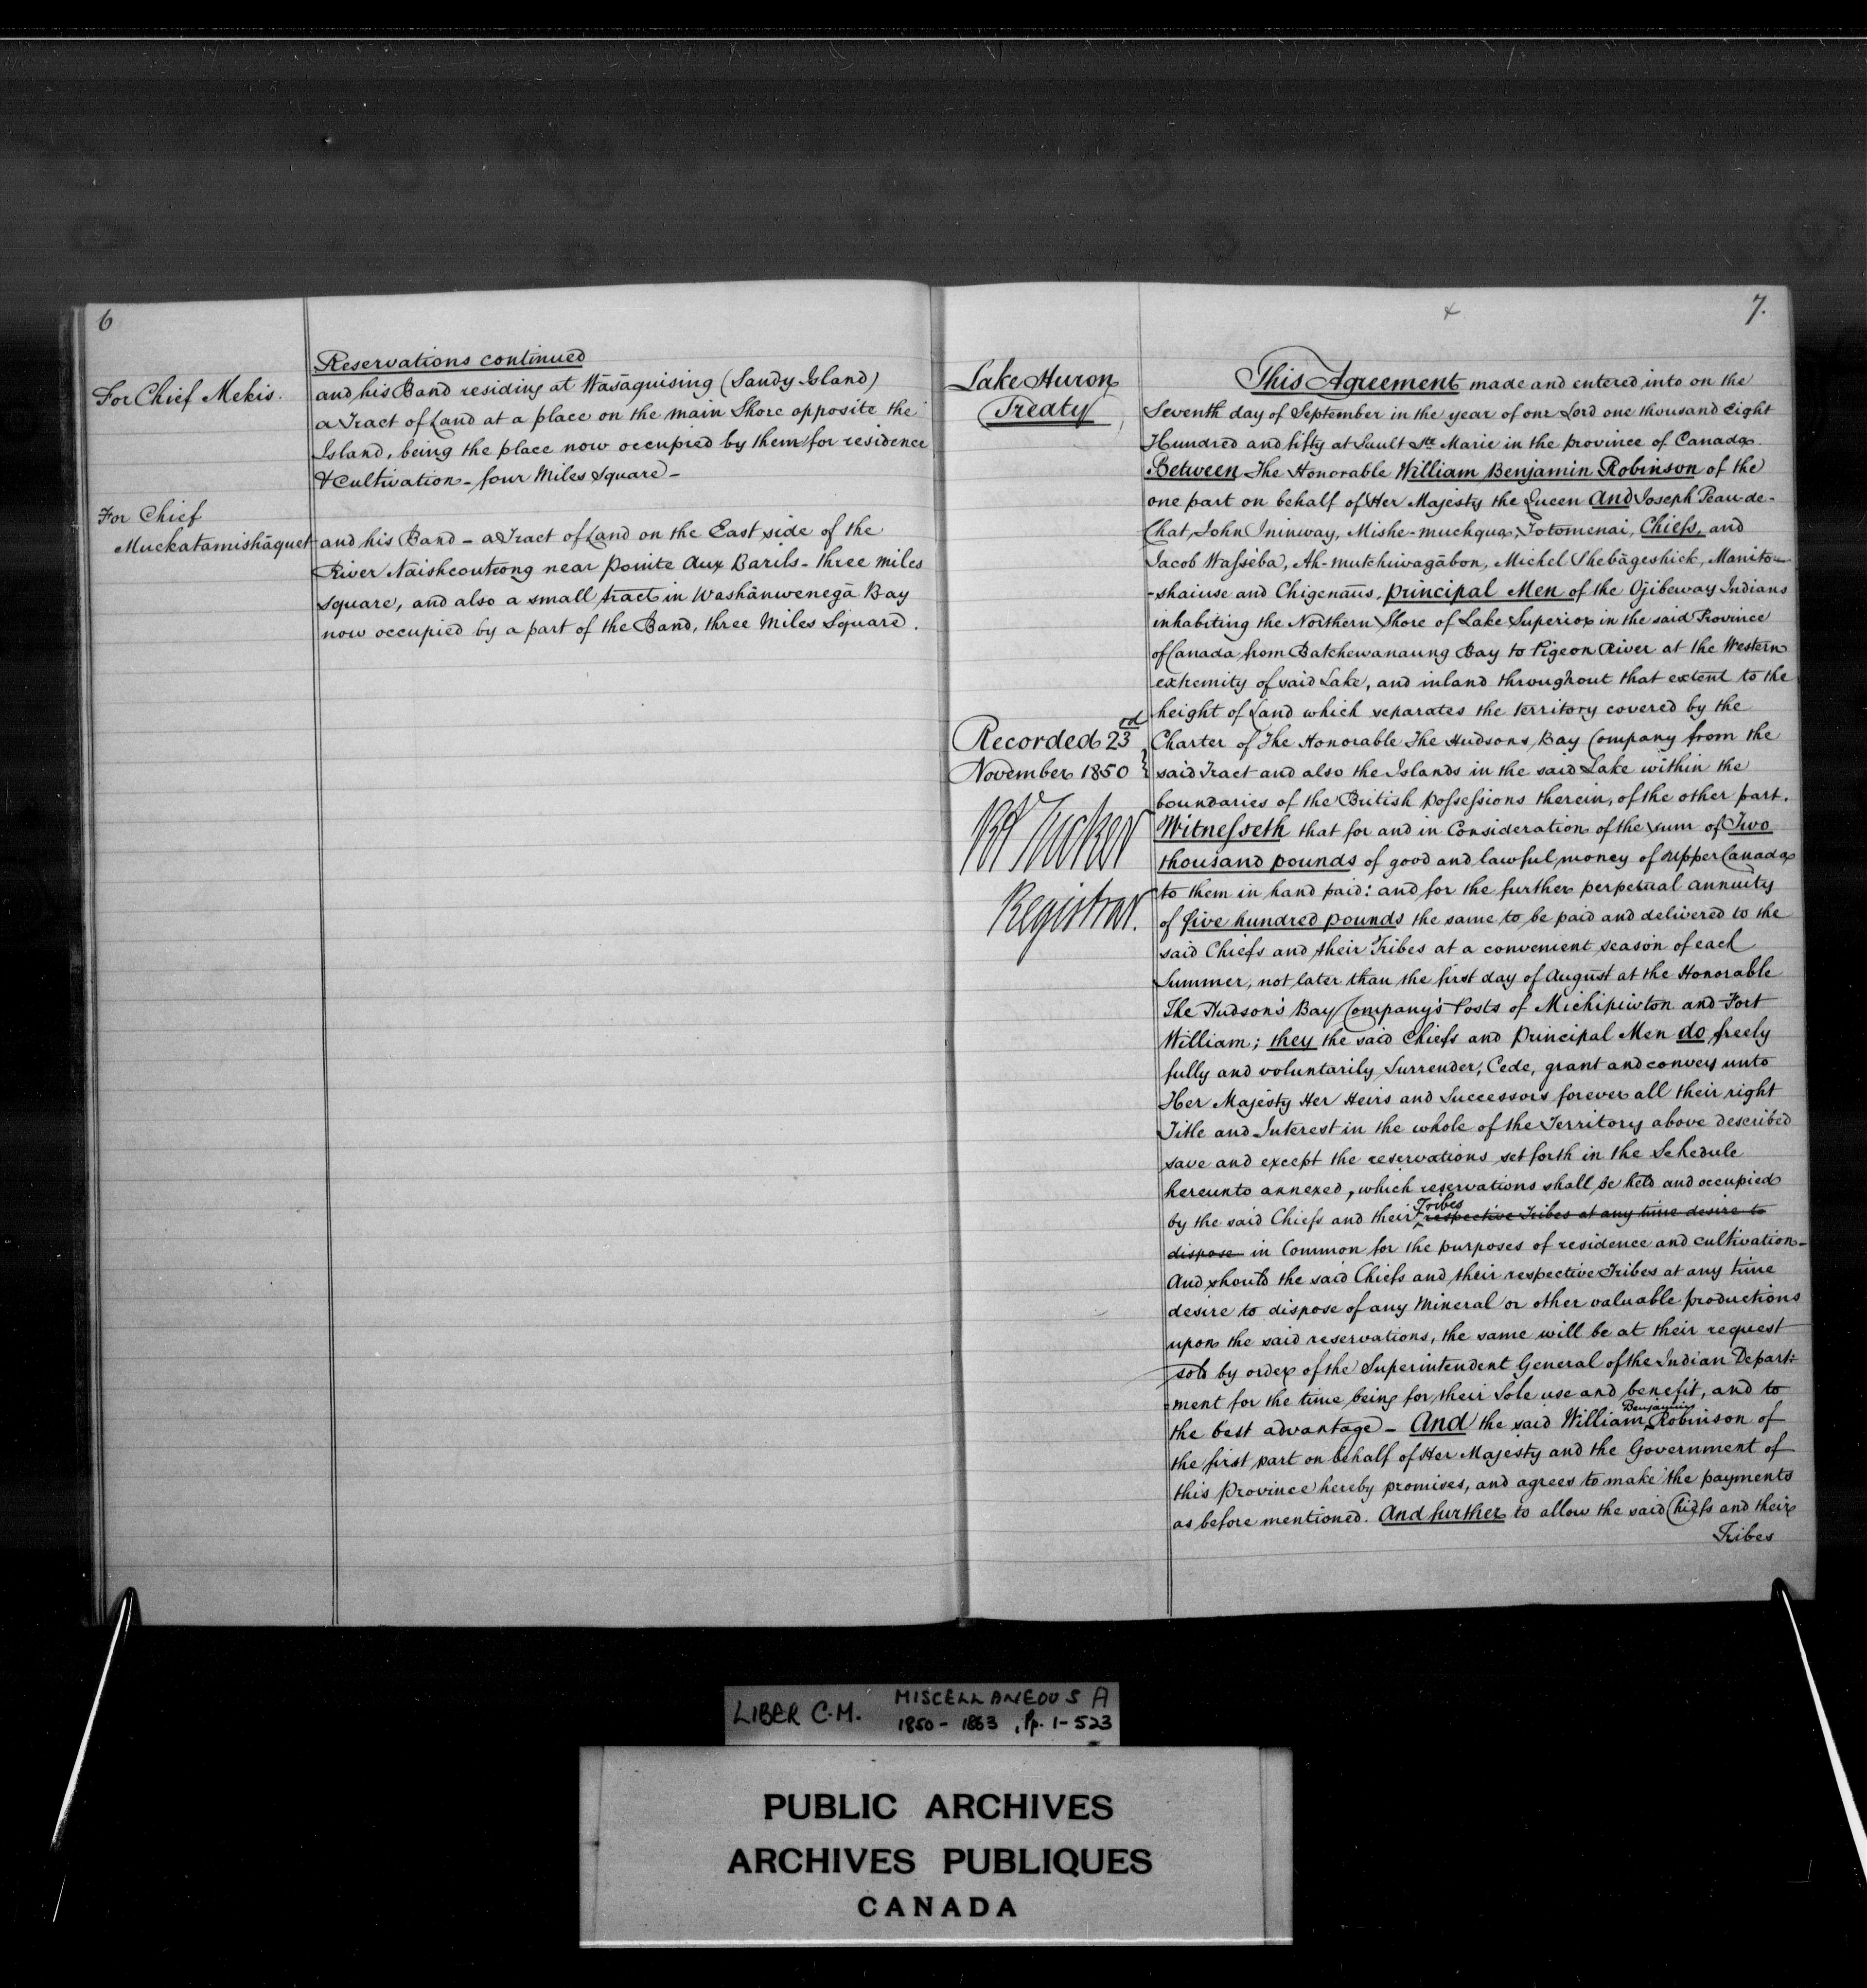 6
Reservations continued
For Chief Mekis.
and his Band residing at Wāsāquising (Sandy Island)
a Tract of Land at a place on the main Shore opposite the
Island, being the place now occupied by them for residence
& Cultivation - four Miles square -
For Chief
Muckatamishāquet
and his Band - a Tract of Land on the East side of the
River Naishcouteong near Pointe Aux Barils - three miles
square, and also a small tract in Washānwenegā Bay
now occupied by a part of the Band, three Miles Square.
7.
Lake Huron
Treaty
Recorded 23rd
November 1850
Tucker
Registrar.
This Agreement made and entered into on the
Seventh day of September in the year of our Lord one thousand Eight
Hundred and fifty at Sault Ste Marie in the province of Canada.
Between The Honorable William Benjamin Robinson of the
one part on behalf of Her Majesty the Queen And Joseph Peau-de-
Chat, John Ininway, Mishe-muckqua, Totomenai, Chiefs, and
Jacob Wasseba, Ah-mutchiwagābon, Michel Shebāgeshick, Manitou
-shainse and Chigenaūs, principal Men of the Ojibeway Indians
inhabiting the Northern Shore of Lake Superior in the said Province
of Canada, from Batchewanaung Bay to Pigeon River at the Western
extremity of said Lake, and inland throughout that extent to the
height of Land which separates the territory covered by the
Charter of The Honorable The Hudsons Bay Company from the
said Tract and also the Islands in the said Lake within the
boundaries of the British Possessions therein, of the other part.
Witnesseth that for and in Consideration of the sum of Two
thousand pounds of good and lawful money of Upper Canada
to them in hand paid: and for the further perpetual annuity
of five hundred pounds the same to be paid and delivered to the
said Chiefs and their Tribes at a convenient season of each
Summer, not later than the first day of August at the Honorable
The Hudson's Bay Company's Posts of Michipicoton and Fort
William; they the said Chiefs and Principal Men do freely
fully and voluntarily Surrender, Cede, grant and convey unto
Her Majesty Her Heirs and Successors forever all their right
Title and Interest in the whole of the Territory above described
save and except the reservations set forth in the Schedule
hereunto annexed, which reservations shall be held and occupied
by the said Chiefs and their Tribes respective Tribes at any time desire to
dispose in Common for the purposes of residence and cultivation -
And should the said Chiefs and their respective Tribes at any time
desire to dispose of any Mineral or other valuable productions
upon the said reservations, the same will be at their request
sold by order of the Superintendent General of the Indian Depart=
=ment for the time being for their Sole use and benefit, and to
the best advantage - And the said William Benjamin Robinson of
the first part on behalf of Her Majesty and the Government of
this Province hereby promises, and agrees to make the payments
as before mentioned. And further to allow the said Chiefs and their
Tribes
LIBER C.M. MISCELLANEOUS A
1850 - 1863, Pp. 1-523
PUBLIC ARCHIVES
ARCHIVES PUBLIQUES
CANADA